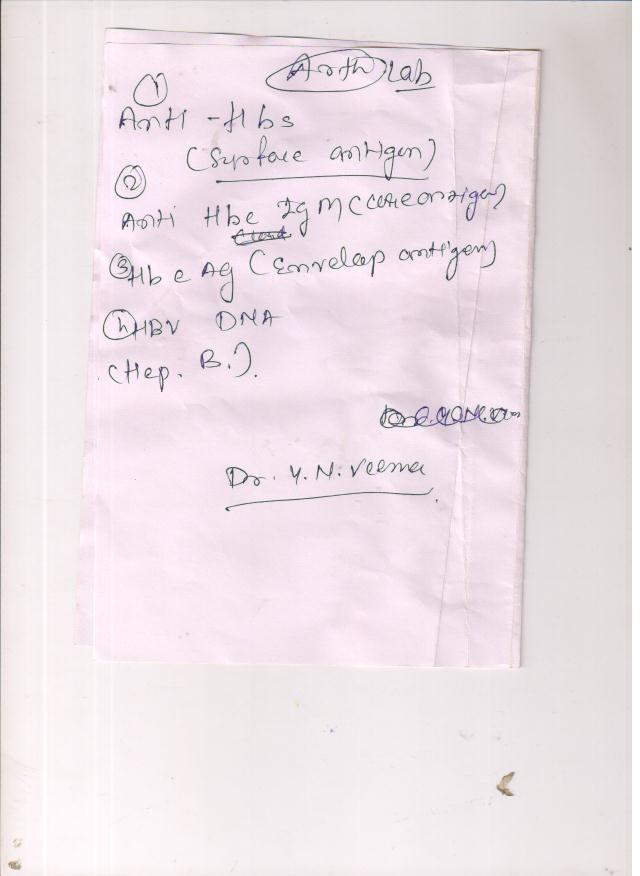 Arth Lab
①
Anti - Hbs
(Surface antigen)
②
Anti Hbc IgM (Core antigen)
③ Hb e Ag (Envelop antigen)
④ HBV DNA
(Hep. B.).
Dr. Y. N. Verma